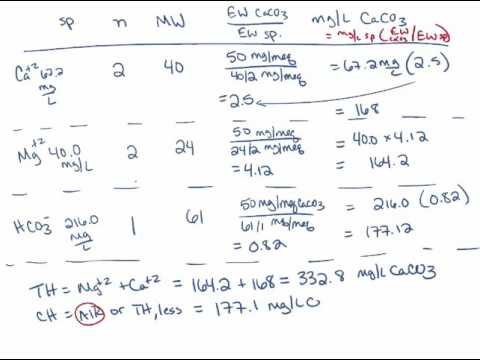 sp n MW EW CaCO3 / EW sp. mg/L CaCO3
= mg/L sp (EW CaCO3 / EW sp)
Ca+2 67.2 mg/L 2 40 50 mg/meq / 40/2 mg/meq = 67.2 mg/L (2.5)
= 2.5 = 168
Mg+2 40.0 mg/L 2 24 50 mg/meq / 24/2 mg/meq = 40.0 x 4.12
= 4.12 = 164.2
HCO3- 216.0 mg/L 1 61 50 mg/meq CaCO3 / 61/1 mg/meq = 216.0 (0.82)
= 0.82 = 177.12
TH = Mg+2 + Ca+2 = 164.2 + 168 = 332.8 mg/L CaCO3
CH = Alk or TH, less = 177.1 mg/L C